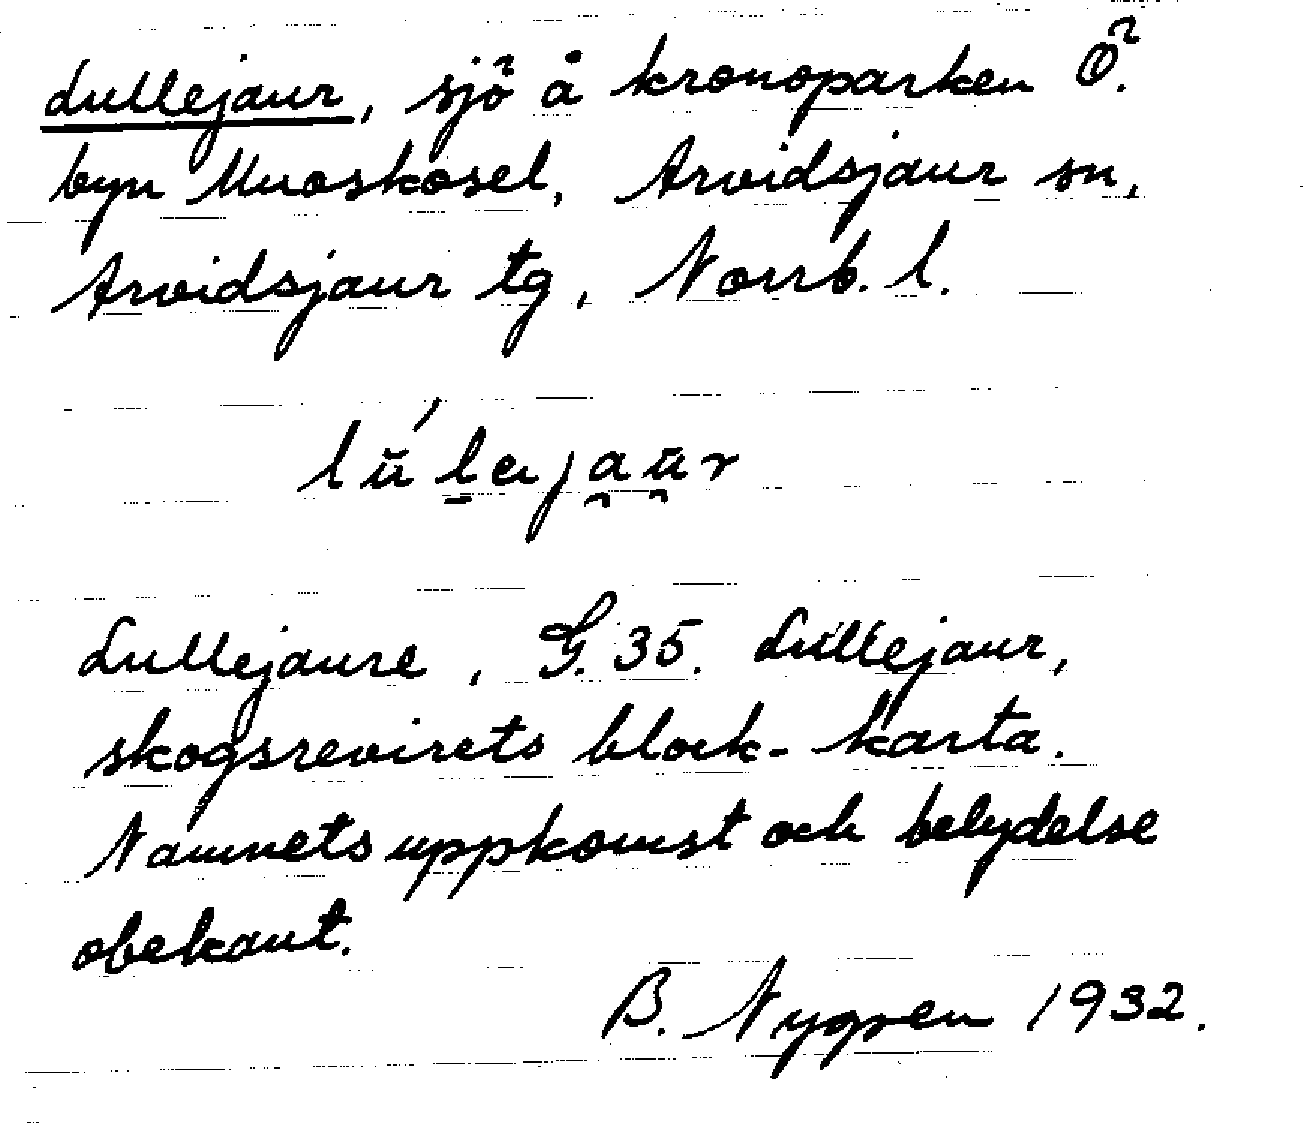 Lullejaur, sjö å kronoparken Ö.
byn Muoskosel, Arvidsjaur sn,
Arvidsjaur tg, Norrb. l.
Lullejaure, G. 35. Lullejaur,
skogsrevirets block-karta.
Namnets uppkomst och betydelse
obekant.
B. Nygren 1932.